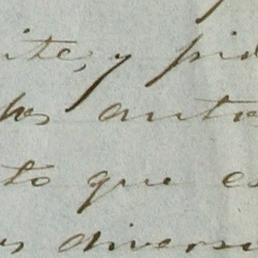 ite, y pid
hos auto
to que es
us diversi